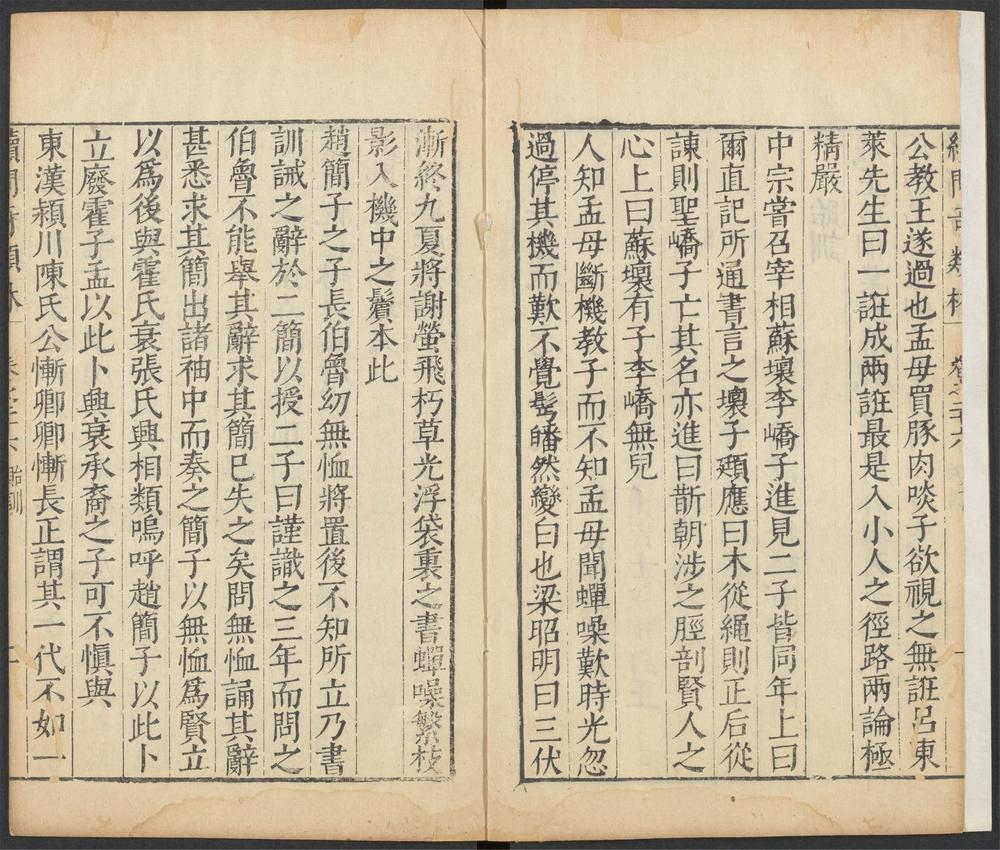 公教王遂過也孟母買豚肉啖子欲視之無誑呂東
萊先生曰一誑成兩誑最是入小人之徑路兩論極
精嚴
中宗嘗召宰相蘇壞李嶠子進見二子皆同年上曰
爾直記所通書言之壞子頲應曰木從繩則正后從
諫則聖嶠子亡其名亦進曰斮朝涉之脛剖賢人之
心上曰蘇壞有子李嶠無兒
人知孟母斷機教子而不知孟母聞蟬噪歎時光忽
過停其機而歎不覺髩皤然變白也梁昭明曰三伏
漸終九夏將謝螢飛朽草光浮袋裏之書蟬噪繁枝
影入機中之鬢本此
趙簡子之子長伯魯幼無恤將置後不知所立乃書
訓誡之辭於二簡以授二子曰謹識之三年而問之
伯魯不能舉其辭求其簡已失之矣問無恤誦其辭
甚悉求其簡出諸袖中而奏之簡子以無恤爲賢立
以爲後與霍氏衰張氏興相類嗚呼趙簡子以此卜
立廢霍子孟以此卜興衰承裔之子可不慎與
東漢潁川陳氏公慚卿卿慚長正謂其一代不如一
胎訓